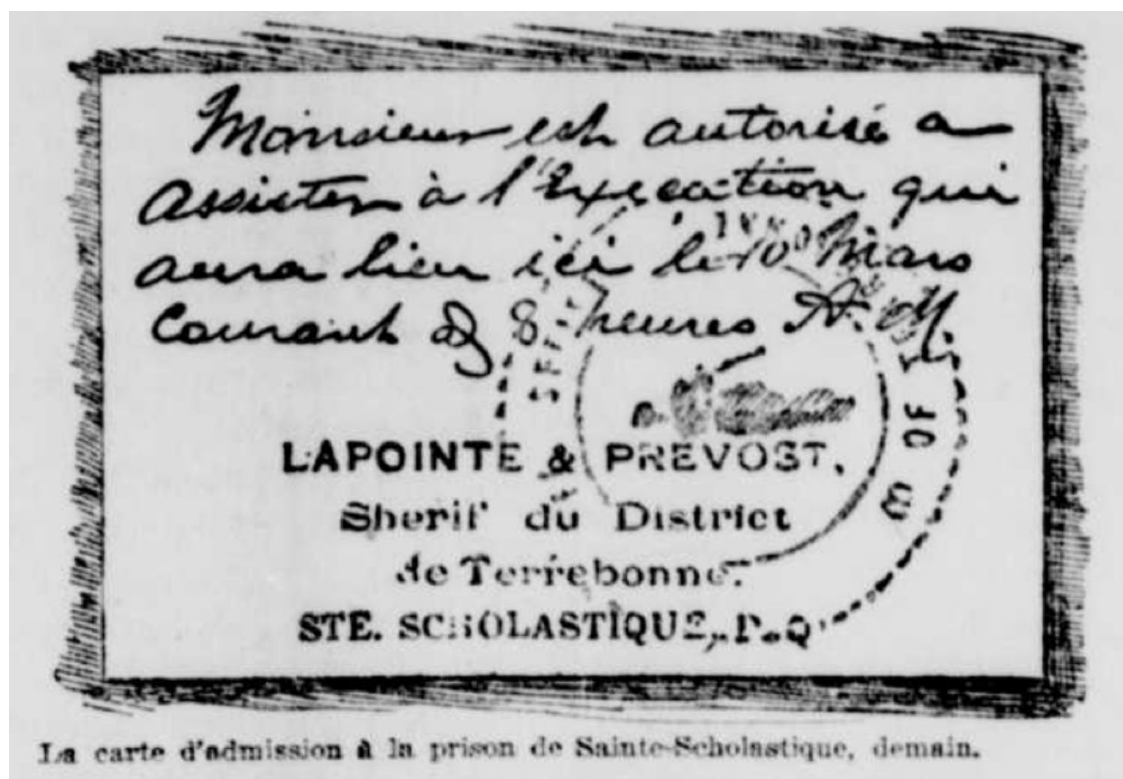 Monsieur est autorisé a
assister à l'Execution qui
aura lieu ici le 10 Mars
Courant à 8 heures A. M.
LAPOINTE & PREVOST,
Sherif du District
de Terrebonne.
STE. SCHOLASTIQUE, P. Q.
OF
La carte d'admission à la prison de Sainte-Scholastique, demain.